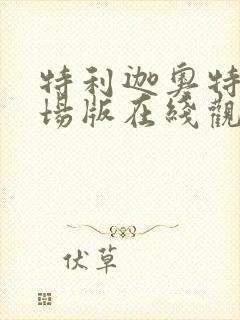 特利迦奥特
場版在綫觀
伏草